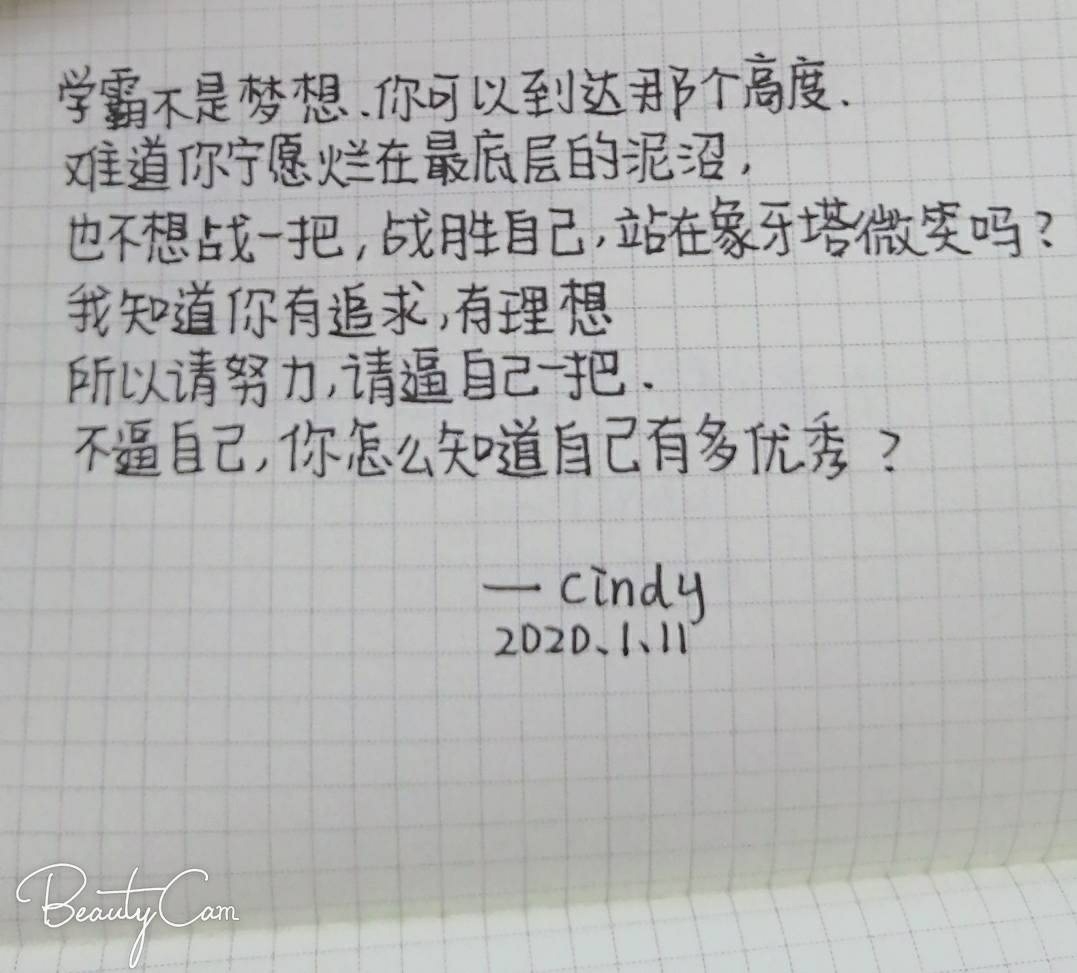 学霸不是梦想.你可以到达那个高度.
难道你宁愿烂在最底层的泥沼,
也不想战一把,战胜自己,站在象牙塔微笑吗?
我知道你有追求,有理想
所以请努力,请逼自己一把.
不逼自己,你怎么知道自己有多优秀?
—Cindy
2020、1、11
BeautyCam